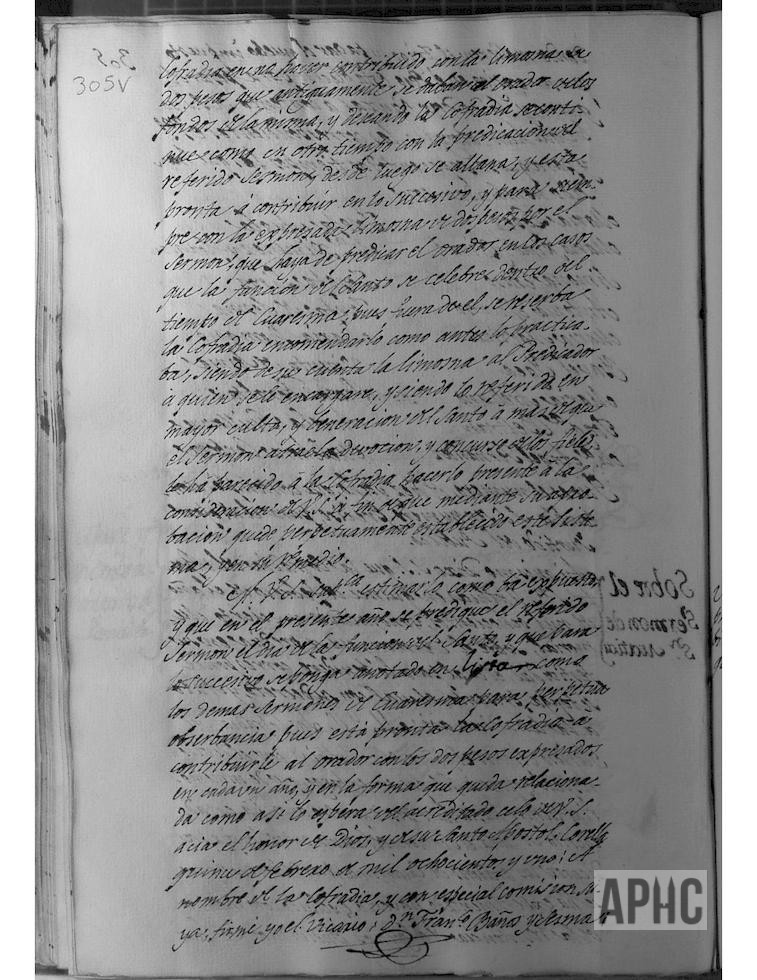 305
305V
Cofradia en no haver contribuido con la limosna de
dos pesos que antiguamente se daban al orador de los
fondos de la misma, y deseando la Cofradia se conti-
nue como en otro tiempo con la predicacion del
referido Sermon, desde luego se allana, y esta
pronta à contribuir en lo succesivo, y para siem-
pre con la expresada limosna de dos pesos por el
Sermon, que haya de predicar el orador en los casos
que la funcion del Santo se celebre dentro del
tiempo de Cuaresma, pues fuera de el, se reserba
la Cofradia encomendarlo como antes lo practica-
ba, siendo de su cuenta la limosna al Predicador
a quien se le encargare, y siendo lo referido en
mayor culto, y beneracion del Santo à mas de que
el Sermon atrae la devocion, y concurso de los fieles
le ha parecido à la Cofradia hacerlo presente à la
consideracion de V.S. à fin de que mediante su apro-
bacion quede perpetuamente establecido este siste-
ma, y en su remedio.
A V.S. sup.ca estimarlo como ba expuesto,
y que en el presente año se predique el referido
Sermon el dia de la funcion del Santo, y que para
lo succesivo se ponga anotado en lista como
los demas Sermones de Cuaresma para perpetua
obserbancia pues està pronta la Cofradia à
contribuirle al orador con los dos pesos expresados
en cada un año, y en la forma que queda relaciona-
da como asi lo espera del acreditado celo de V.S.
acia el honor de Dios, y de su Santo Apostol. Corella
quince de febrero de mil ochocientos y uno; A
nombre de la Cofradia, y con especial comision su-
ya, firmè yo el Vicario; Dn Franco Baños y Sesma
Sobre el
Sermon de
Sn Matias
APHC